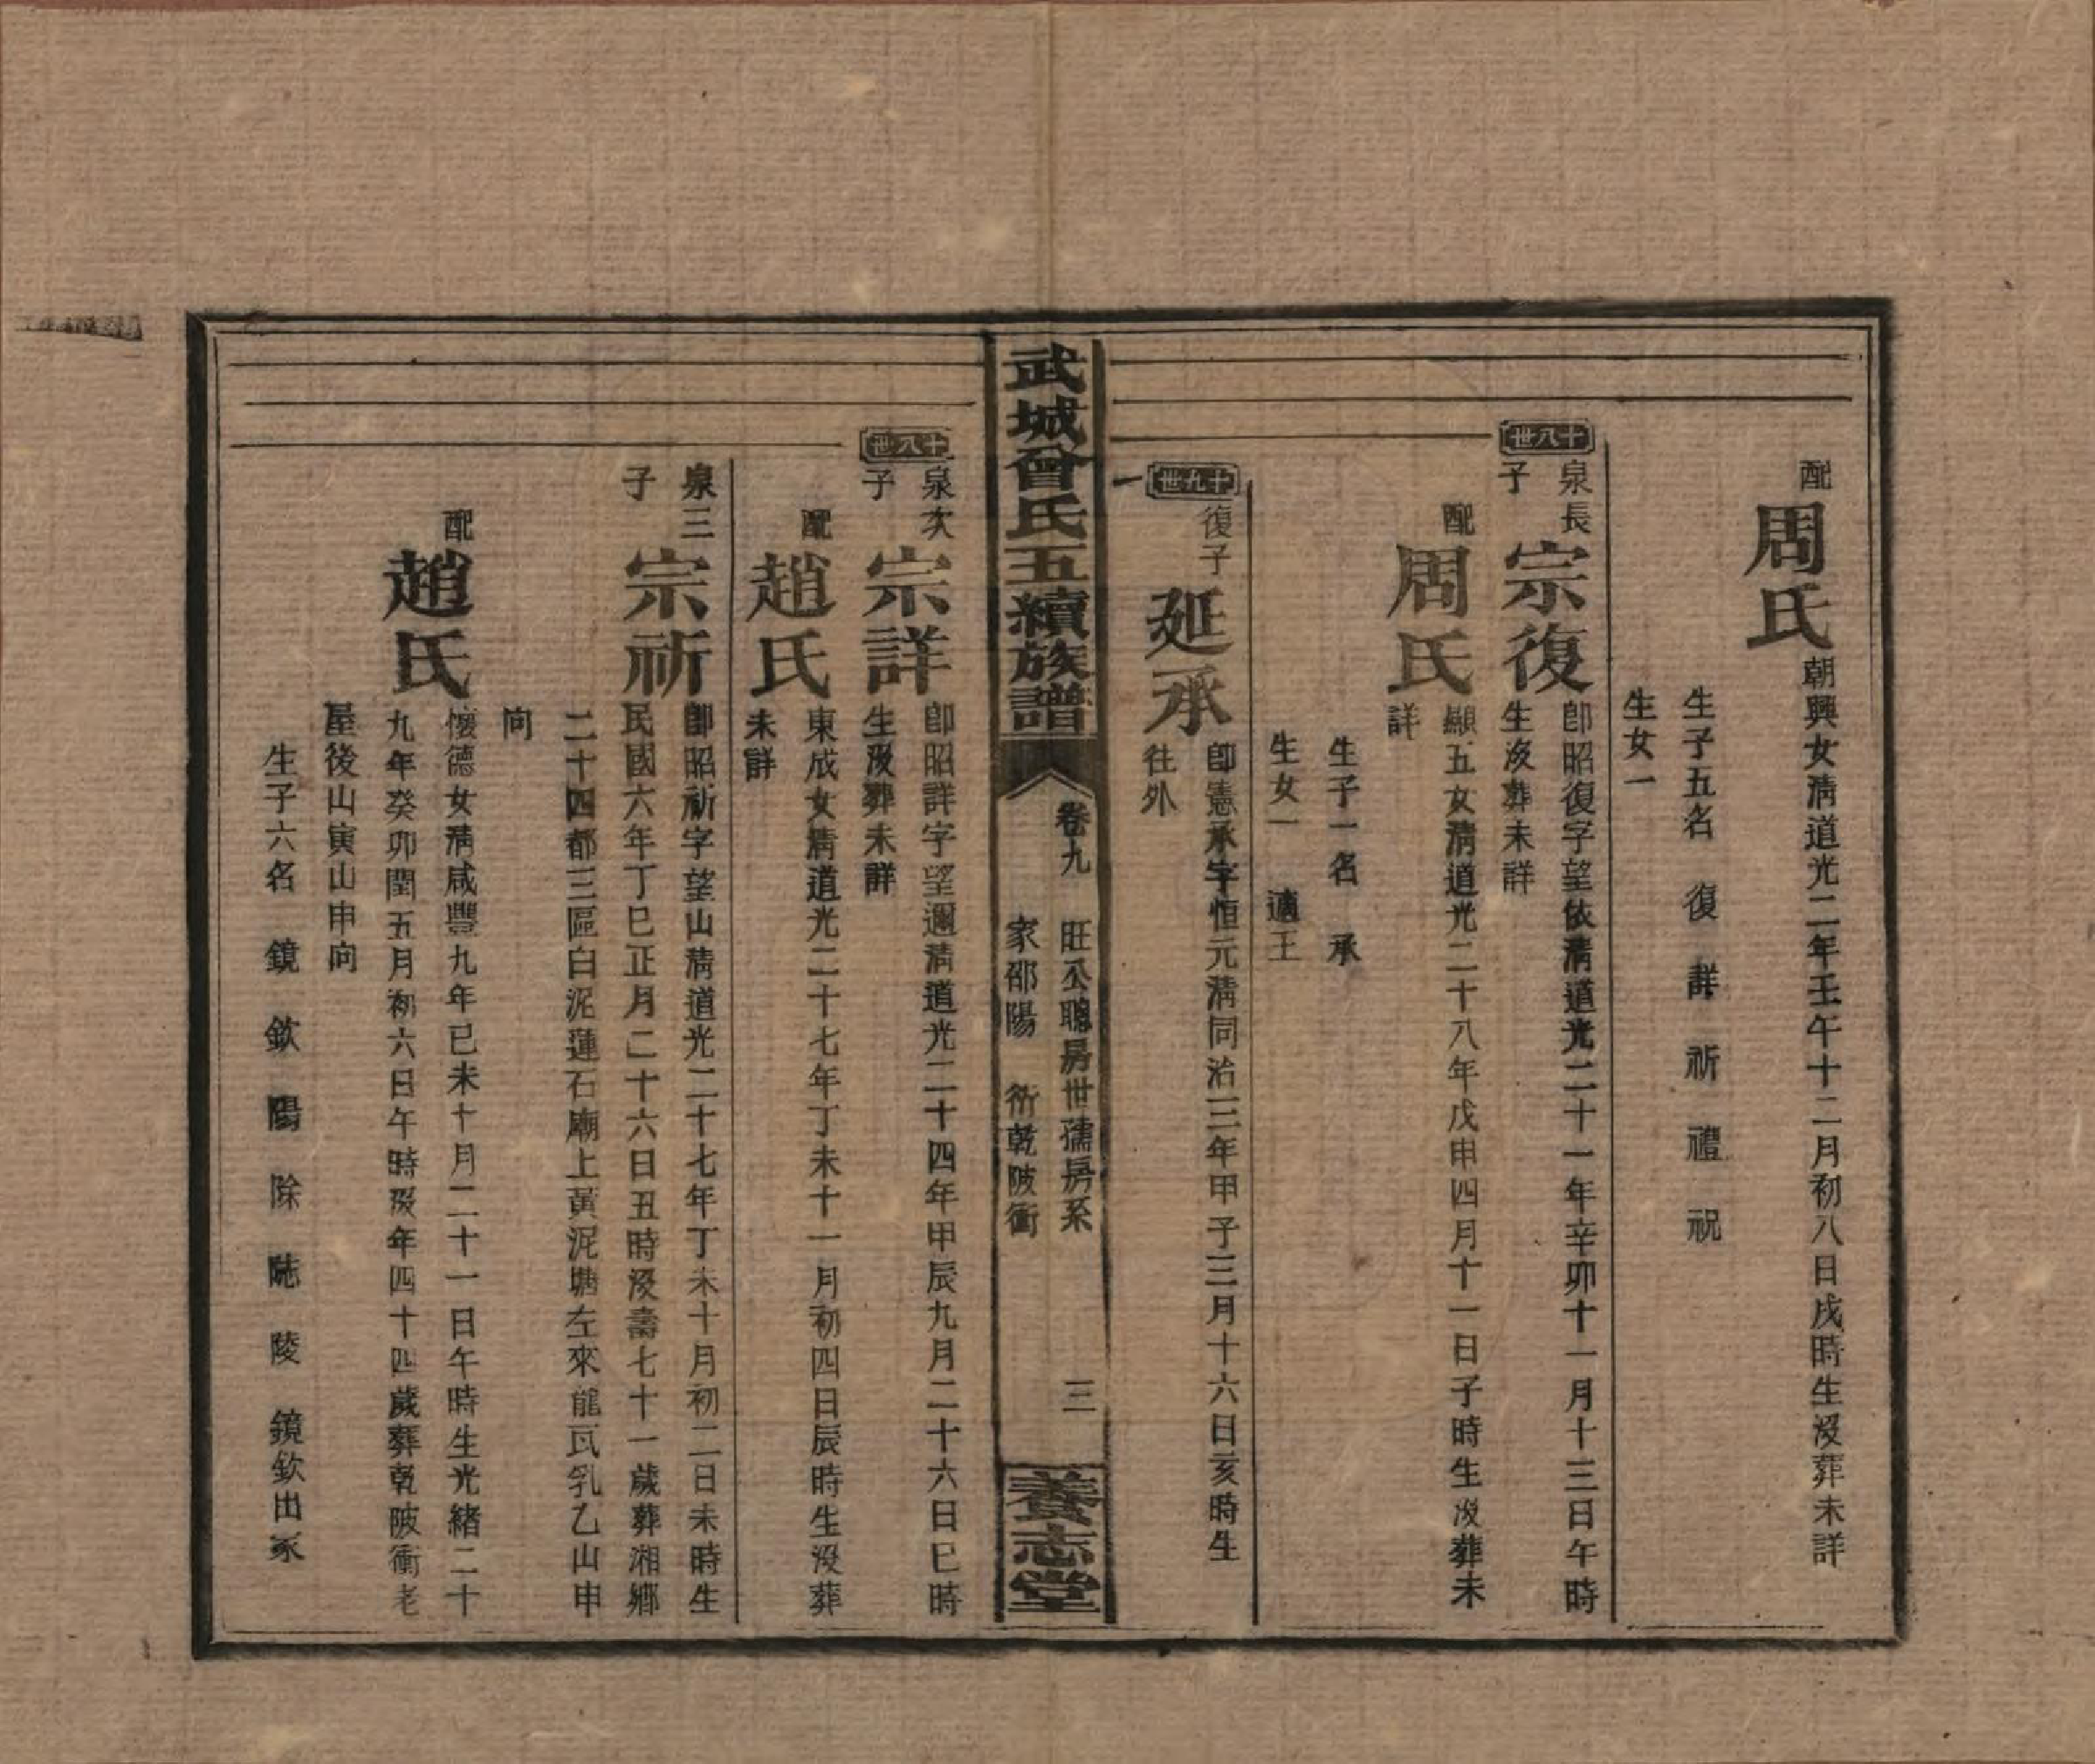 配
周氏
朝興女清道光二年壬午十二月初八日戌時生歿葬未詳
生子五名　復　詳　祈　禮　祝
生女一
十八世
泉長子
宗復
卽昭復字望依清道光二十一年辛卯十一月十三日午時
生歿葬未詳
配
周氏
顯五女清道光二十八年戊申四月十一日子時生歿葬未
詳
生子一名　承
生女一　適王
十九世
復子
延承
卽憲承字恒元清同治三年甲子三月十六日亥時生
往外
武城曾氏五續族譜
卷九　旺公聰房世孺房系　三
家邵陽　衖乾陂衝
養志堂
十八世
泉次子
宗詳
卽昭詳字望邇清道光二十四年甲辰九月二十六日巳時
生歿葬未詳
配
趙氏
東成女清道光二十七年丁未十一月初四日辰時生歿葬
未詳
泉三子
宗祈
卽昭祈字望山清道光二十七年丁未十月初二日未時生
民國六年丁巳正月二十六日丑時歿壽七十一歲葬湘鄉
二十四都三區白泥蓮石廟上黃泥塘左來龍瓦乳乙山申
向
配
趙氏
懷德女清咸豐九年己未十月二十一日午時生光緒二十
九年癸卯閏五月初六日午時歿年四十四歲葬乾陂衝老
屋後山寅山申向
生子六名　鏡　欽　陽　除　陭　陵　鏡欽出家